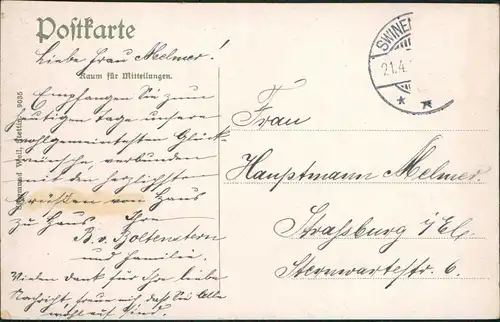 Postkarte
Liebe Frau Melmer!
Raum für Mitteilungen.
Empfangen Sie zum
heutigen Tage unsere
wohlgemeintesten Glück-
wünsche, verbunden
mit den herzlichsten
Grüßen von Haus
zu Haus. Ihre
B. v. Boltenstern
und Familie.
Vielen Dank für Ihre liebe
Nachricht, freue mich daß Sie Alle
wohlauf sind.
Weil, Stettin. 9035
SWINEM
21.4.
Frau
Hauptmann Melmer.
Straßburg i/Els.
Sternwartestr. 6.